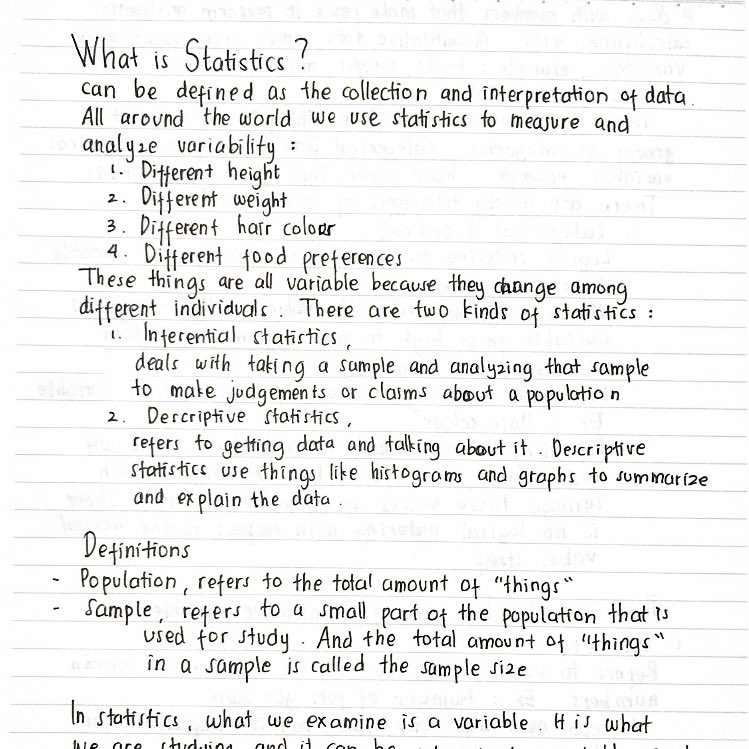 What is Statistics ?
can be defined as the collection and interpretation of data.
All around the world we use statistics to measure and
analyze variability :
1. Different height
2. Different weight
3. Different hair colour
4. Different food preferences
These things are all variable because they change among
different individuals. There are two kinds of statistics :
1. Inferential statistics,
deals with taking a sample and analyzing that sample
to make judgements or claims about a population
2. Descriptive statistics,
refers to getting data and talking about it. Descriptive
statistics use things like histograms and graphs to summarize
and explain the data.
Definitions
- Population, refers to the total amount of "things"
- Sample, refers to a small part of the population that is
used for study. And the total amount of "things"
in a sample is called the sample size
In statistics, what we examine is a variable. It is what
we are studying and it can be